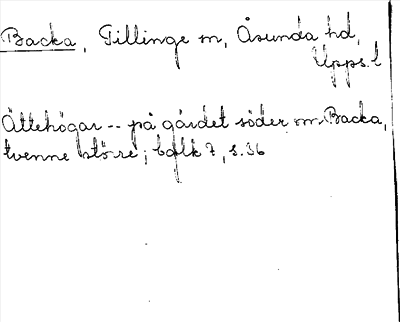 Backa, Tillinge sn, Åsunda hd,
Upps. l
Ättehögar -- på gärdet söder om Backa,
tvenne större; balk 7, s. 36